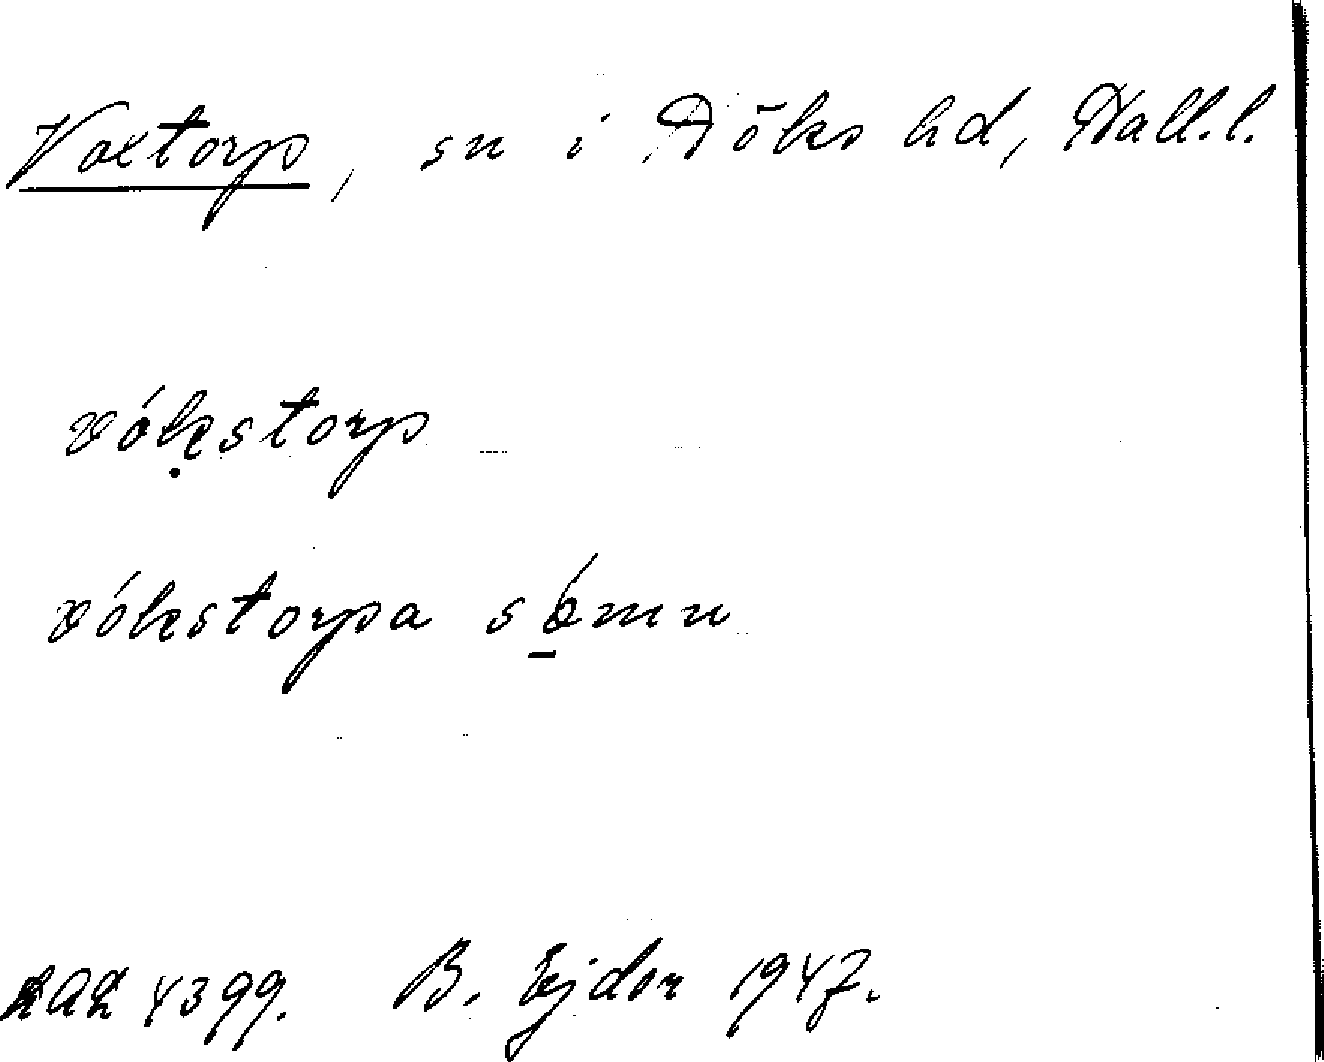 Voxtorp, sn i Höks hd, Hall.l.
vókstorp
vókstorpa sómn
LAL 4399. B. Ejder 1947.